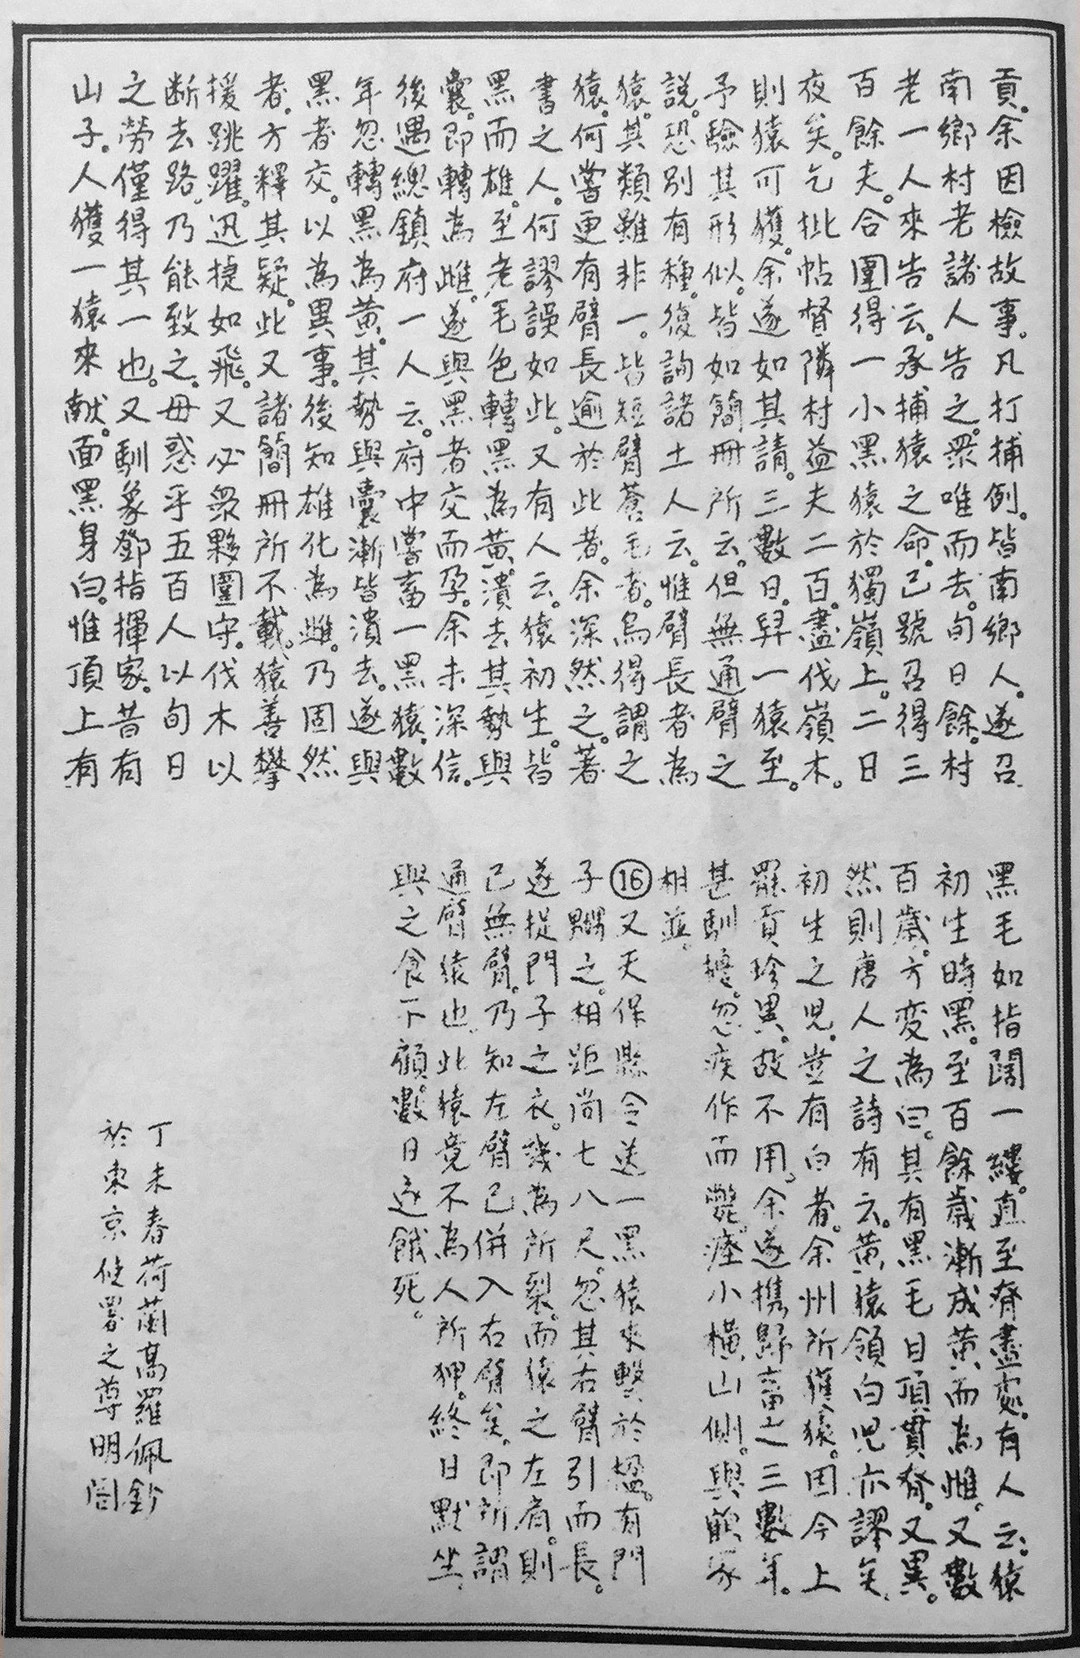 貢。余因檢故事。凡打捕例。皆南鄉人。遂召
南鄉村老諸人告之。衆唯而去。旬日餘。村
老一人來告云。承捕猿之命。已號召得三
百餘夫。合圍得一小黑猿於獨嶺上。二日
夜矣。乞批帖督隣村益夫二百。盡伐嶺木。
則猿可獲。余遂如其請。三數日。舁一猿至。
予驗其形似。皆如簡冊所云。但無通臂之
說。恐別有種。復詢諸土人云。惟臂長者為
猿。其類雖非一。皆短臂蒼毛者。烏得謂之
猿。何嘗更有臂長逾於此者。余深然之。著
書之人。何謬誤如此。又有人云。猿初生。皆
黑而雄。至老毛色轉黑為黃。潰去其勢與
囊。即轉為雌。遂與黑者交而孕。余未深信。
後遇總鎮府一人云。府中嘗畜一黑猿。數
年忽轉黑為黃。其勢與囊漸皆潰去。遂與
黑者交。以為異事。後知雄化為雌。乃固然
者。方釋其疑。此又諸簡冊所不載。猿善攀
援跳躍。迅捷如飛。又必衆夥圍守。伐木以
断去路。乃能致之。毋惑乎五百人以旬日
之勞僅得其一也。又馴象鄧指揮家。昔有
山子。人獲一猿來献。面黑身白。惟頂上有
黑毛如指闊一縷。直至脊盡處。有人云。猿
初生時黑。至百餘歲漸成黃。而為雌。又數
百歲。方変為白。其有黑毛自頂貫脊。又異。
然則唐人之詩有云。黃猿領白児亦謬矣。
初生之児。豈有白者。余州所獲猿。因今上
罷貢珍異。故不用。余遂携歸畜之三數年。
甚馴擾。忽疾作而斃。瘞小橫山側。與鸚冢
相並。
⑯又天保縣令送一黑猿來繫於楹。有門
子嬲之。相距尚七八尺。忽其右臂引而長。
遂捉門子之衣。幾為所裂。而猿之左肩。則
已無臂。乃知左臂已併入右臂矣。即所謂
通臂猿也。此猿竟不為人所狎。終日默坐。
與之食不顧。數日遂餓死。
丁未春荷蘭高羅佩鈔
於東京使署之尊明閣